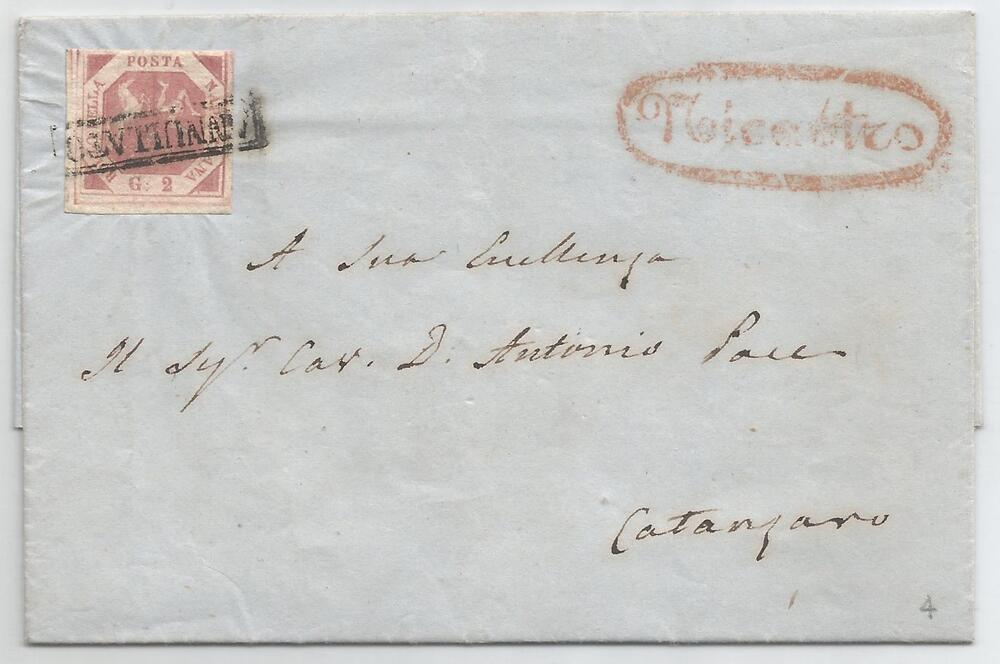 POSTA NA
NA
G. 2
ELLA
ANNULLATO
Nicastro
A Sua Eccellenza
Il Sigr. Cav. D. Antonio Pace
Catanzaro
4